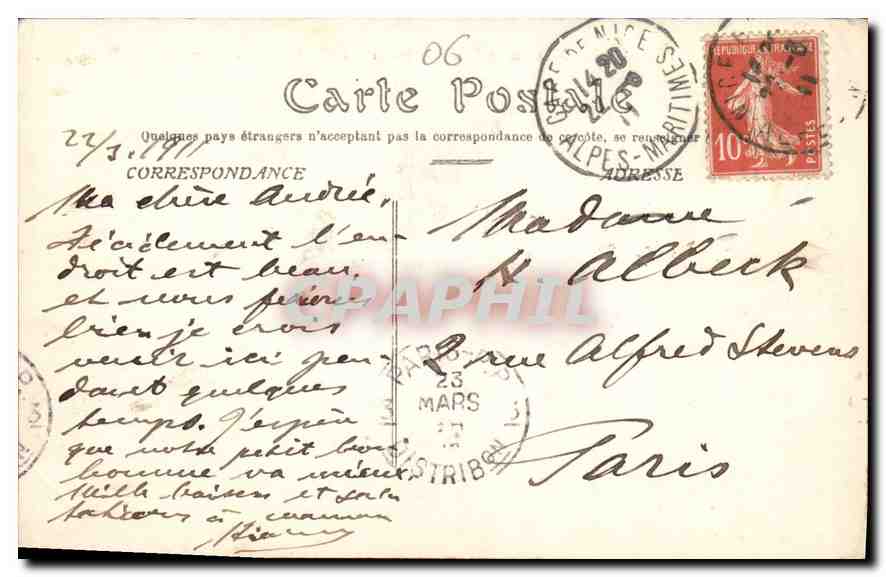 06
Carte Postale
Quelques pays étrangers n'acceptant pas la correspondance de ce côté, se renseigner
22/3.1911
CORRESPONDANCE
ADRESSE
Ma chère Andrée,
Décidément l'en-
droit est beau,
et nous ferions
bien je crois
venir ici pen-
dant quelques
temps. J'espère
que notre petit bon-
homme va mieux.
Mille baisers et
à maman
Madame
H. Albeck
2 rue Alfred Stevens
Paris
GARE DE NICE
14 20
22
ALPES-MARITIMES
REPUBLIQUE FRANCAISE
10
POSTES
PARIS
23
MARS
DISTRIBON
CPAPHIL